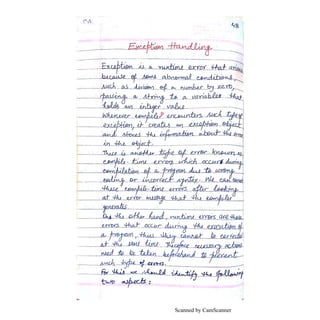 Exception Handling
Exception is a runtime error that arises
because of some abnormal conditions,
such as division of a number by zero,
passing a string to a variable that
holds an integer value.
Whenever compiler encounters such type of
exception, it creates an exception object
and stores the information about the error
in the object.
There is another type of error known as
compile-time error which occurs during
compilation of a program due to wrong
coding or incorrect syntax. We can correct
these compile time errors after looking
at the error message that the compiler
generates.
On the other hand, runtime errors are those
errors that occur during the execution of
a program, thus they cannot be corrected
at the same time. Therefore necessary actions
need to be taken beforehand to prevent
such type of errors.
For this we should identify the following
two aspects:
Scanned by CamScanner